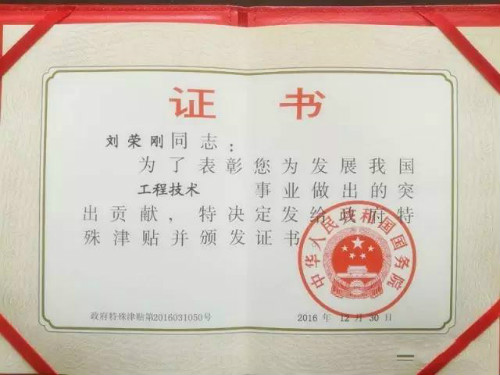 证书
刘荣刚同志：
为了表彰您为发展我国
工程技术 事业做出的突
出贡献，特决定发给政府特
殊津贴并颁发证书
中华人民共和国国务院
政府特殊津贴第2016031050号
2016 年 12 月 30 日